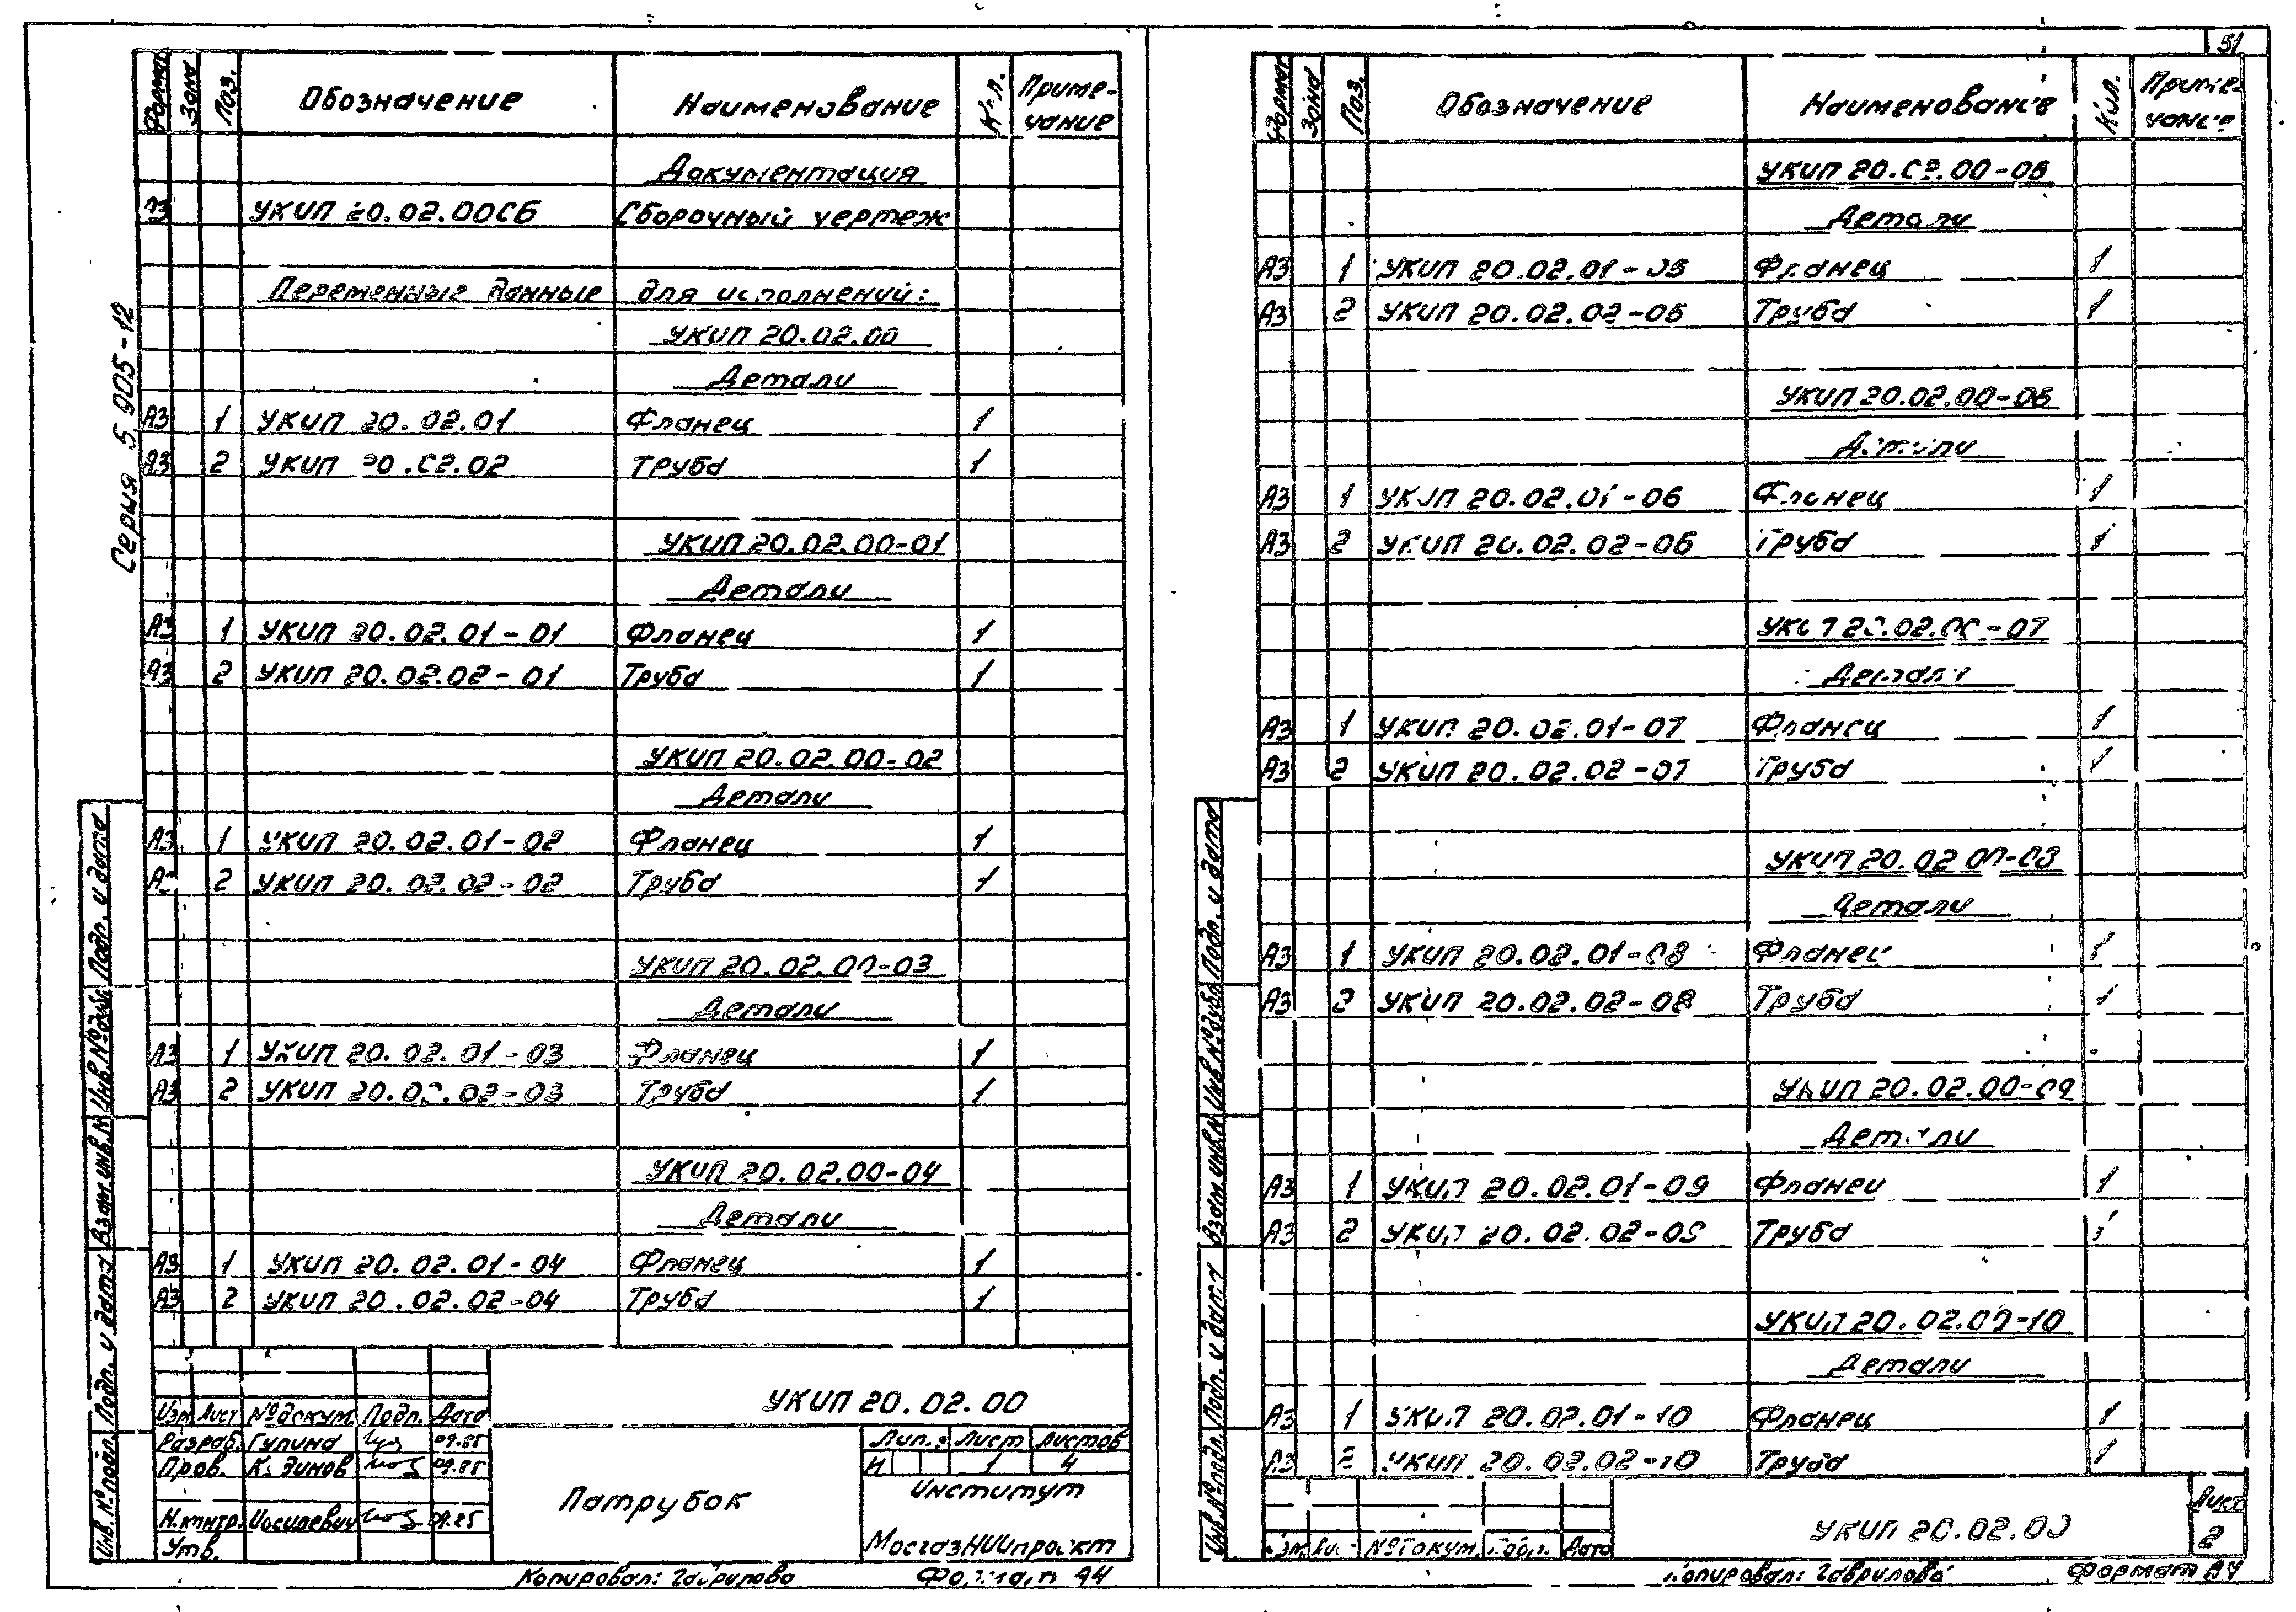 51
Серия 5.905-12
Формат Зона Поз. Обозначение Наименование Кол. Приме-
чание
Документация
А3 УКИП 20.02.00СБ Сборочный чертеж
Переменные данные для исполнений:
УКИП 20.02.00
Детали
А3 1 УКИП 20.02.01 Фланец 1
А3 2 УКИП 20.02.02 Труба 1
УКИП 20.02.00-01
Детали
А3 1 УКИП 20.02.01-01 Фланец 1
А3 2 УКИП 20.02.02-01 Труба 1
УКИП 20.02.00-02
Детали
А3 1 УКИП 20.02.01-02 Фланец 1
А3 2 УКИП 20.02.02-02 Труба 1
УКИП 20.02.00-03
Детали
А3 1 УКИП 20.02.01-03 Фланец 1
А3 2 УКИП 20.02.02-03 Труба 1
УКИП 20.02.00-04
Детали
А3 1 УКИП 20.02.01-04 Фланец 1
А3 2 УКИП 20.02.02-04 Труба 1
Инв.№подл. Подп. и дата Взам.инв.№ Инв.№дубл. Подп. и дата
УКИП 20.02.00
Изм Лист №докум. Подп. Дата
Разраб. Гупина 09.85
Пров. 09.85
Н.контр. Иосилевич 09.85
Утв.
Патрубок
Лит. Лист Листов
И 1 4
Институт
МосгазНИИпроект
Копировал: Гаврилова Формат А4
Формат Зона Поз. Обозначение Наименование Кол. Приме-
чание
УКИП 20.02.00-05
Детали
А3 1 УКИП 20.02.01-05 Фланец 1
А3 2 УКИП 20.02.02-05 Труба 1
УКИП 20.02.00-06
Детали
А3 1 УКИП 20.02.01-06 Фланец 1
А3 2 УКИП 20.02.02-06 Труба 1
УКИП 20.02.00-07
Детали
А3 1 УКИП 20.02.01-07 Фланец 1
А3 2 УКИП 20.02.02-07 Труба 1
УКИП 20.02.00-08
Детали
А3 1 УКИП 20.02.01-08 Фланец 1
А3 2 УКИП 20.02.02-08 Труба 1
УКИП 20.02.00-09
Детали
А3 1 УКИП 20.02.01-09 Фланец 1
А3 2 УКИП 20.02.02-09 Труба 1
УКИП 20.02.00-10
Детали
А3 1 УКИП 20.02.01-10 Фланец 1
А3 2 УКИП 20.02.02-10 Труба 1
Инв.№подл. Подп. и дата Взам.инв.№ Инв.№дубл. Подп. и дата
Изм Лист №докум. Подп. Дата
УКИП 20.02.00
Лист
2
Копировал: Гаврилова Формат А4